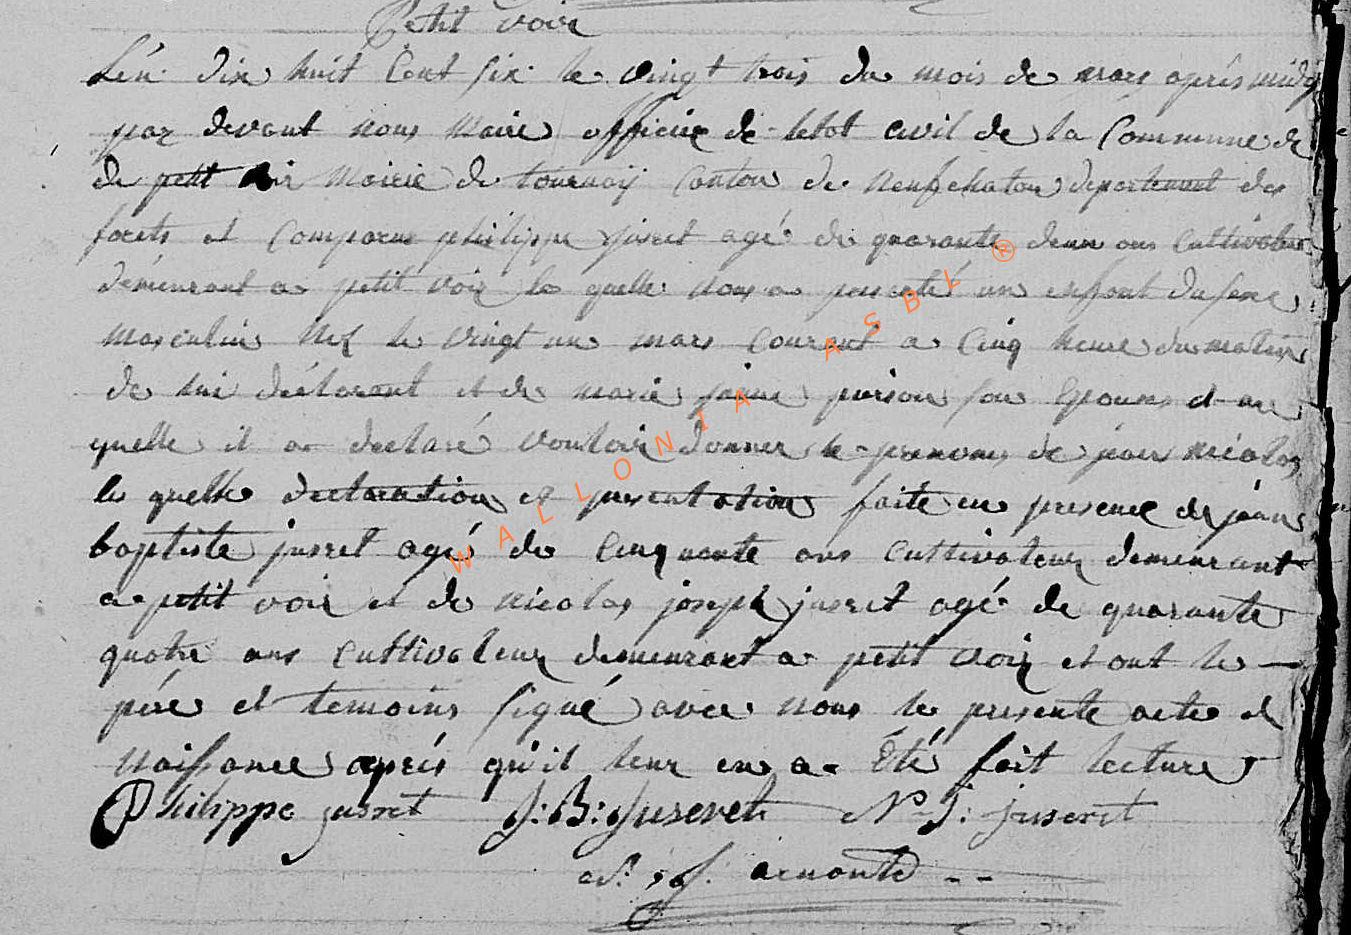 Petit voir
L'én dix huit Cent six le vingt trois du mois de mars aprés midy
par devant nous Maire officiér de letat civil de la Commune de
de petit voir Mairie de tournay Canton de neufchatau departement des
forets et Comparue philippe jusret agé de quarante deux ans Cultivateur
démeurant a petit voir le quelle nous a presenté un enfant du sexe
masculin Nez le vingt un mars Courant a Cinq heure du matin
de lui déclarant et de marie jeanne pierson son Epouse et au
quelle il a declaré vouloir donner le prenoms de jean nicolas
le quelle declaration et presentation faite en presence de jean
baptiste jusret agés de Cinquante ans Cultivateur demeurant
a petit voir et de nicolas joseph jusret agé de quarante
quatre ans Cultivateur demeurant a petit voir et ont le
pére et temoins signé avec nous le presente acte de
naissance aprés qu'il leur en a Été fait lecture
Philippe jusret J:B:Juseret N J: juseret
arnould
WALLONIA ASBL ®